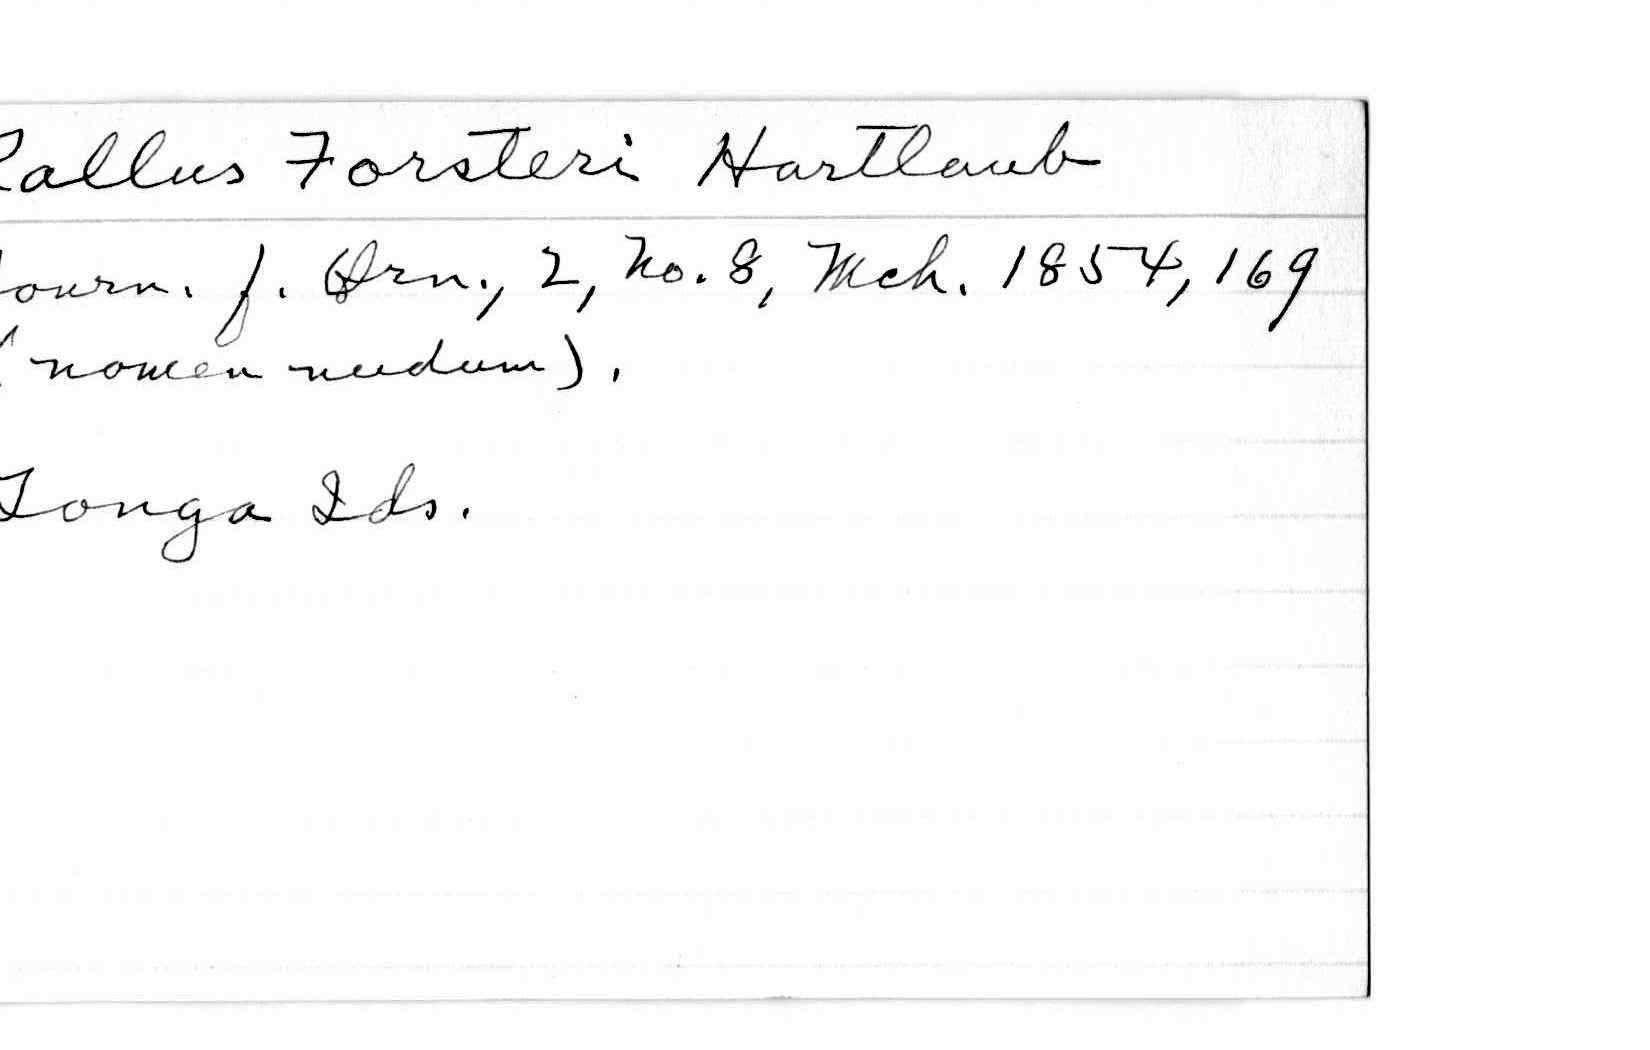 Rallus Forsteri Hartlaub
Journ. f. Orn., 2, No. 8, Mch. 1854, 169
(nomen nudum).
Tonga Ids.